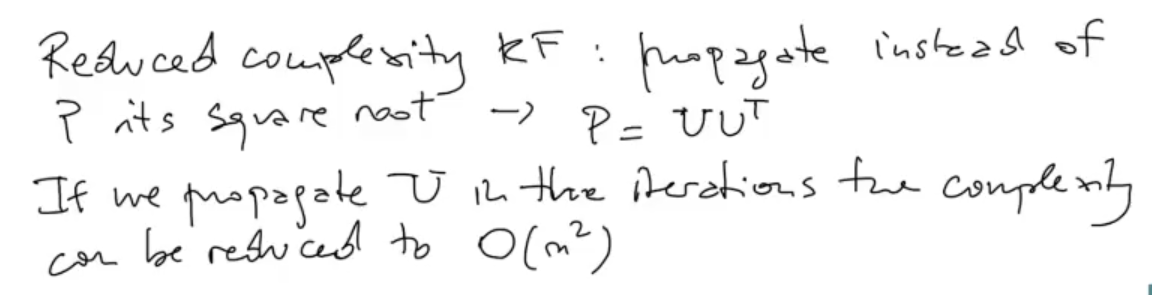 Reduced complexity KF : propagate instead of
P its square root → P = UUᵀ
If we propagate U in the iterations the complexity
can be reduced to O(m²)